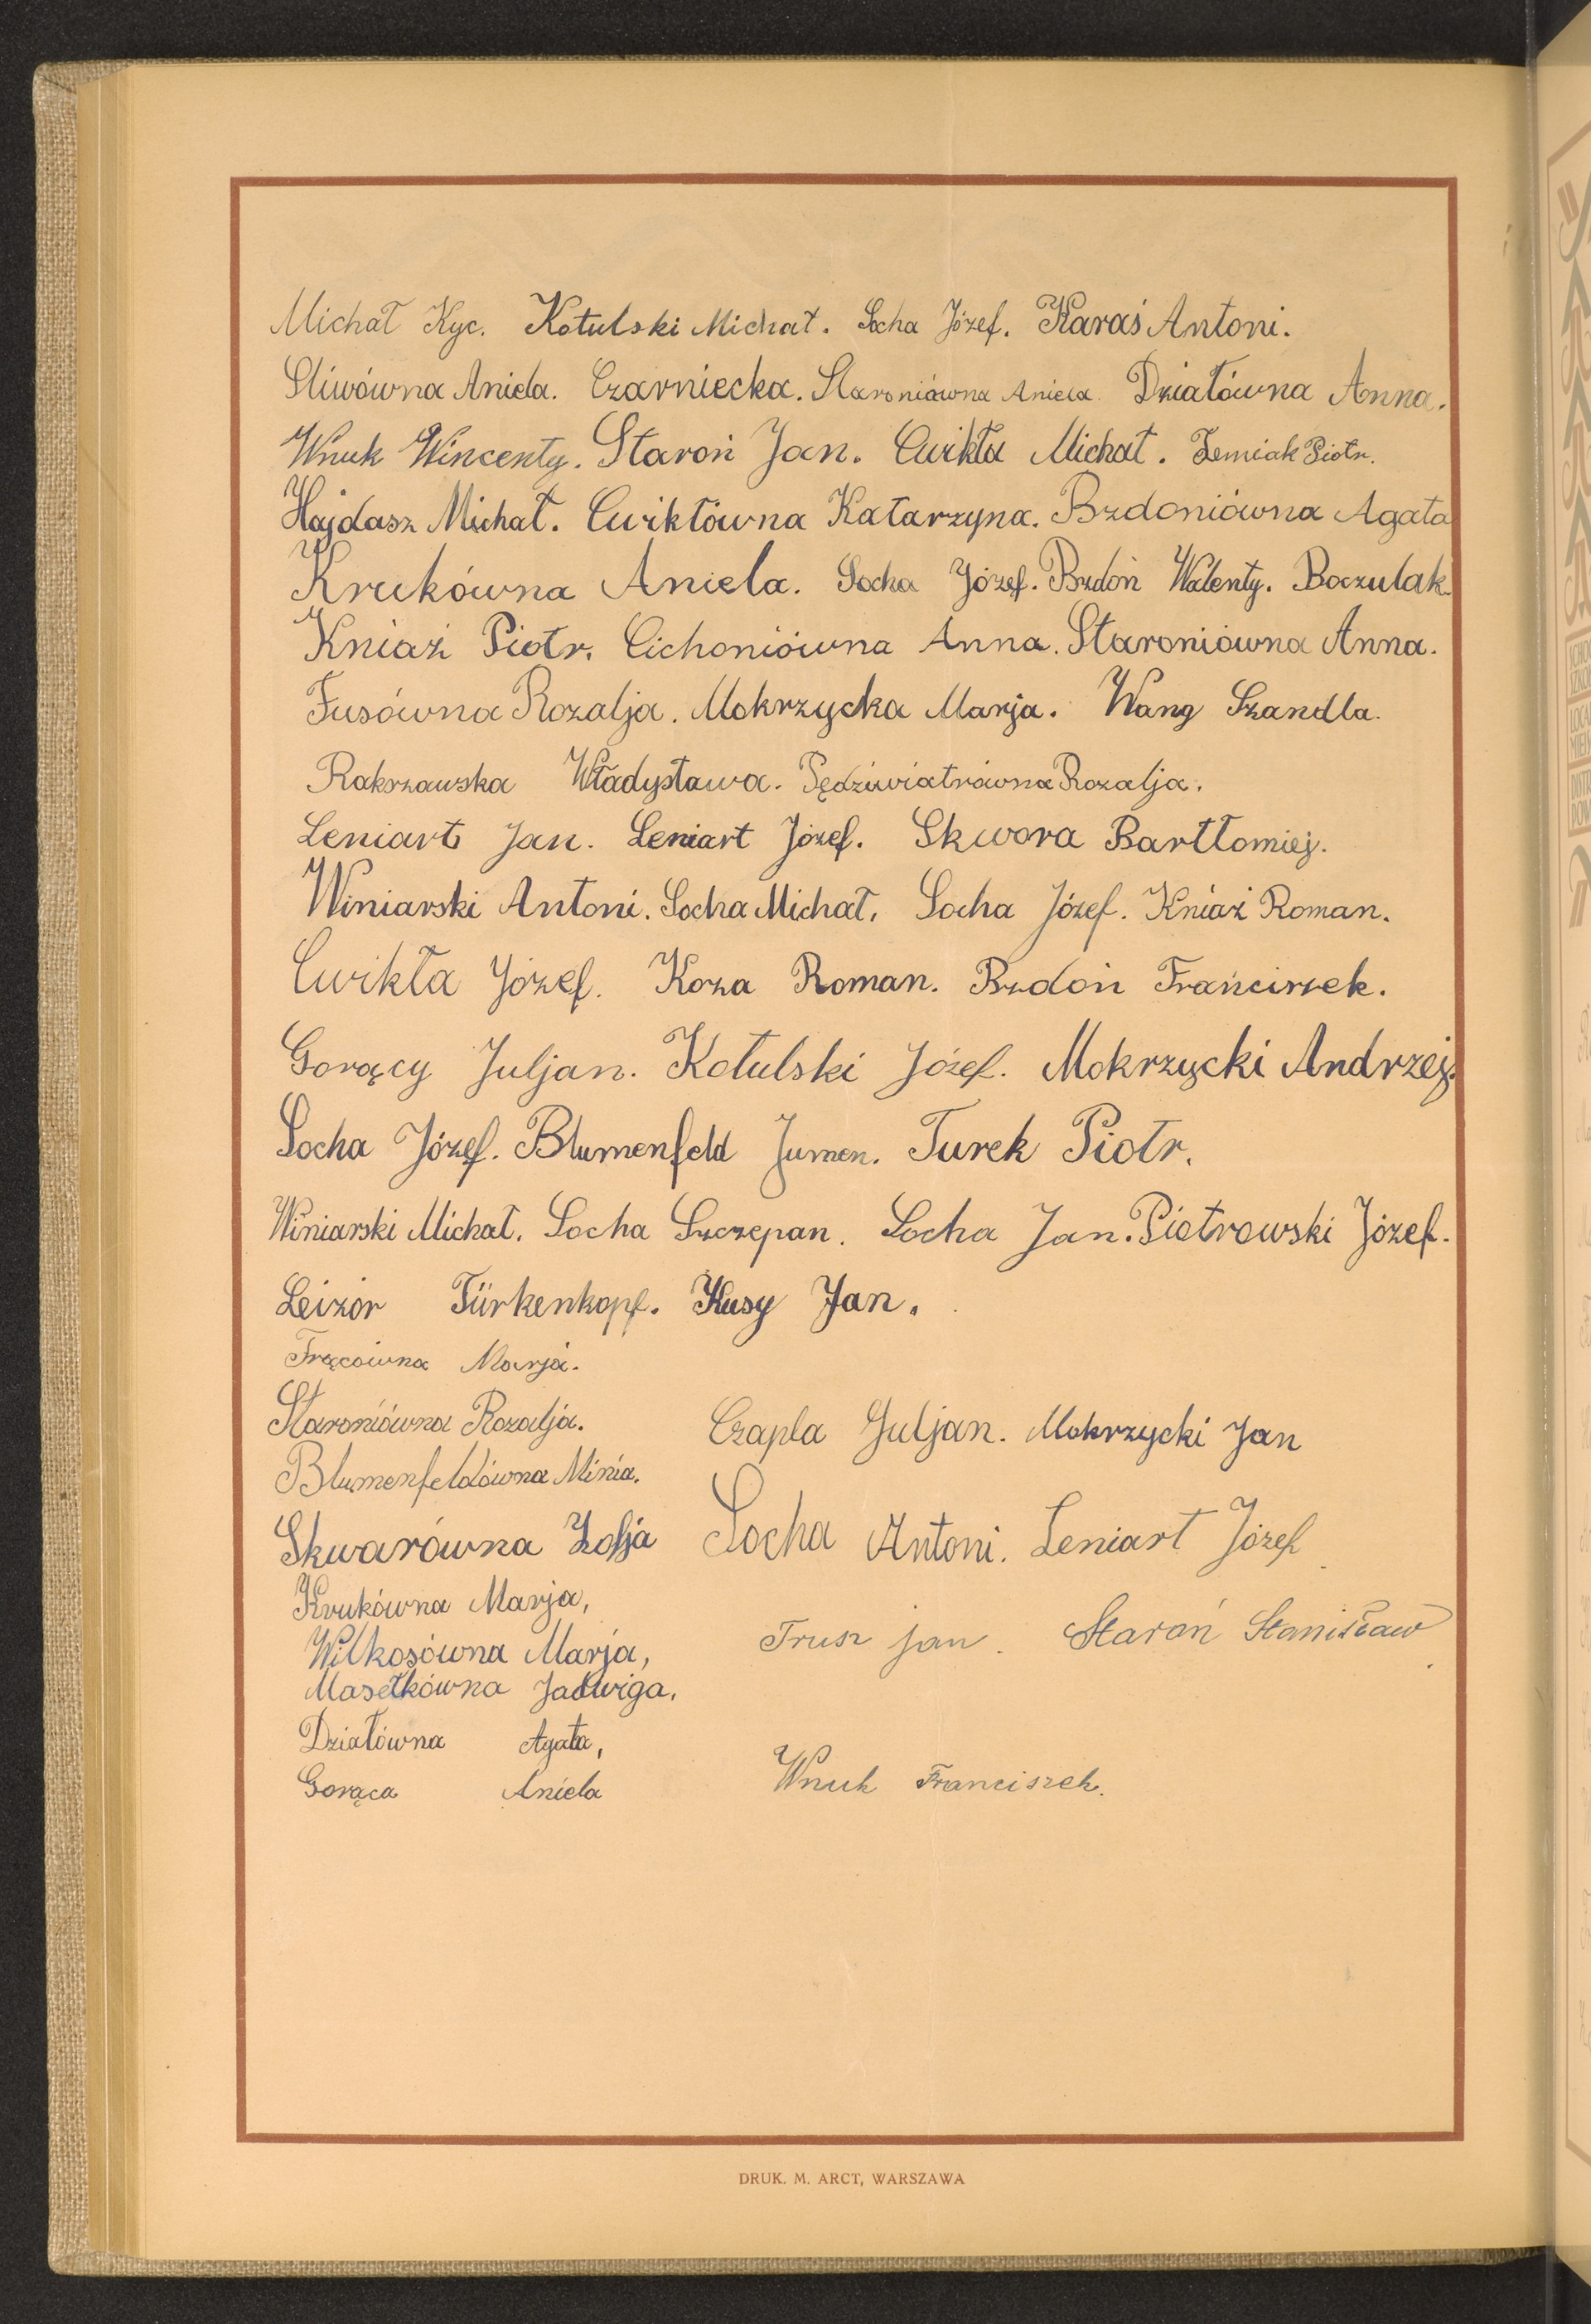 Michał Kyc. Kotulski Michał. Socha Józef. Karaś Antoni.
Śliwówna Aniela. Czarniecka. Staroniówna Aniela. Działówna Anna.
Wnuk Wincenty. Staroń Jan. Ćwikła Michał. Ziemiak Piotr.
Hajdasz Michał. Ćwikłówna Katarzyna. Bzdoniówna Agata
Krukówna Aniela. Socha Józef. Bzdoń Walenty. Boczulak.
Kniaź Piotr. Cichoniówna Anna. Staroniówna Anna.
Fusówna Rozalja. Mokrzycka Marja. Wang Szandla.
Rakszawska Władysława. Pędziwiatrówna Rozalja.
Leniart Jan. Leniart Józef. Skwora Bartłomiej.
Winiarski Antoni. Socha Michał. Socha Józef. Kniaź Roman.
Ćwikła Józef. Koza Roman. Bzdoń Franciszek.
Gorący Juljan. Kotulski Józef. Mokrzycki Andrzej.
Socha Józef. Blumenfeld Jumen. Turek Piotr.
Winiarski Michał. Socha Szczepan. Socha Jan. Piotrowski Józef.
Leizor Türkenkopf. Kusy Jan.
Frącówna Marja.
Staroniówna Rozalja. Czapla Juljan. Mokrzycki Jan
Blumenfeldówna Minia.
Skwarówna Zofja Socha Antoni. Leniart Józef
Krukówna Marja,
Wilkosówna Marja, Trusz Jan. Staroń Stanisław
Masełkówna Jadwiga.
Działówna Agata,
Gorąca Aniela Wnuk Franciszek.
DRUK. M. ARCT, WARSZAWA